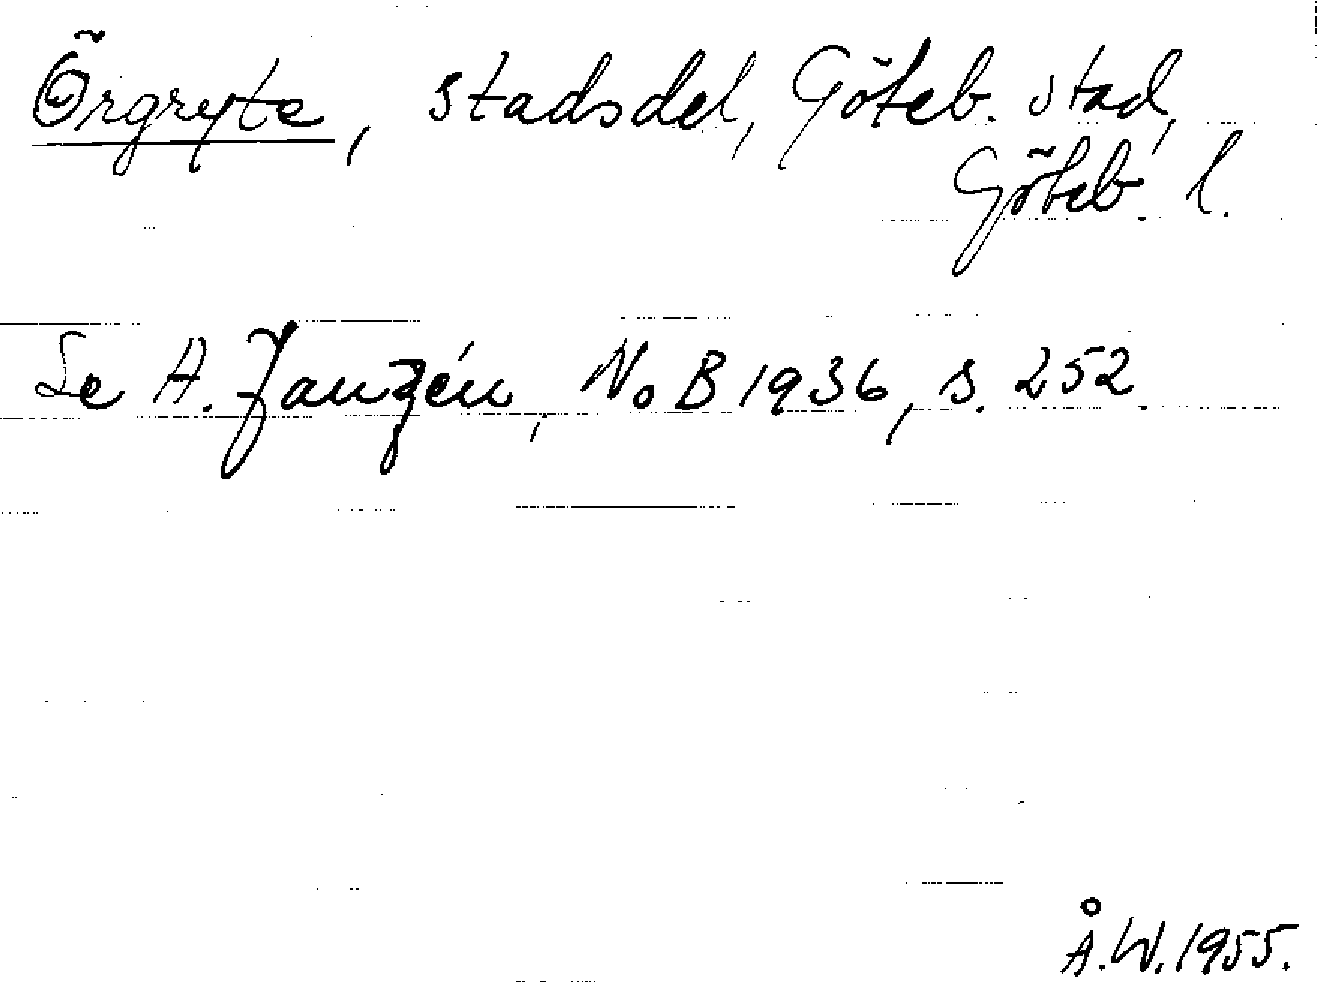 Örgryte, stadsdel, Göteb. stad,
Göteb. l.
Se A. Janzén, NoB 1936, s. 252.
Å.W. 1955.